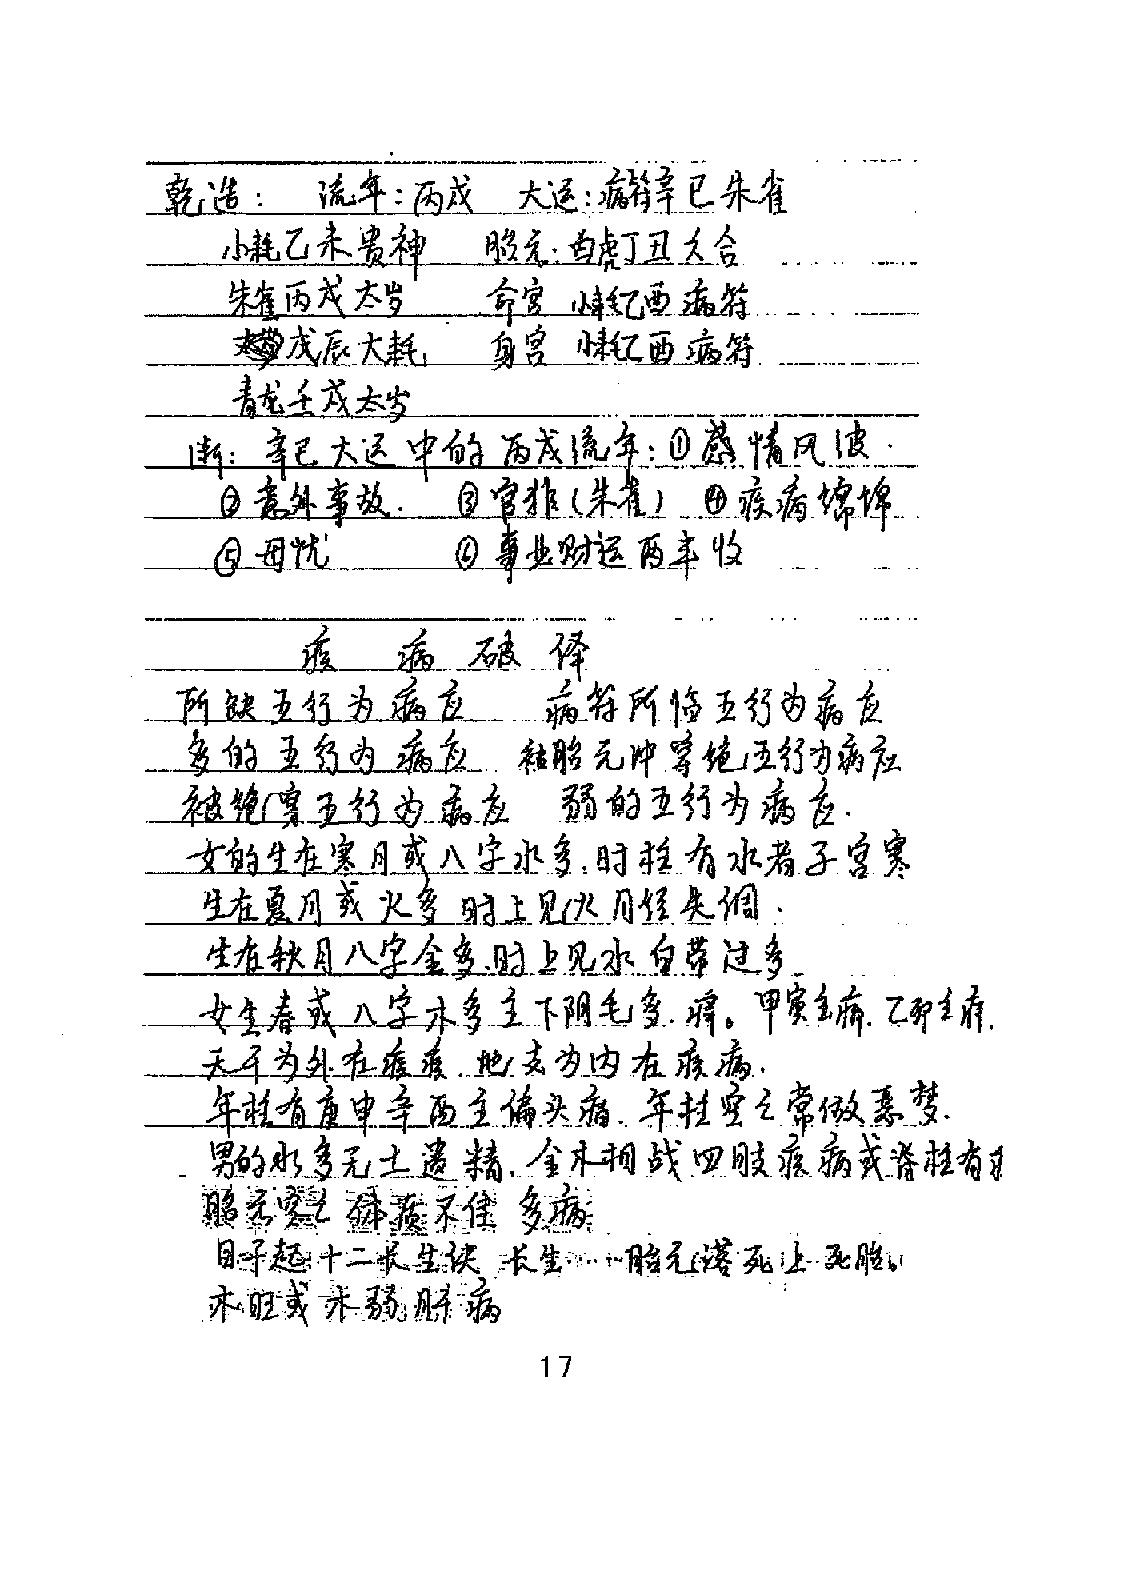 乾造： 流年：丙戌 大运：病符辛巳朱雀
小耗乙未贵神 胎元：白虎丁丑六合
朱雀丙戌太岁 命宫 小耗乙酉病符
戊辰大耗 身宫 小耗乙酉病符
青龙壬戌太岁
断：辛巳大运中的丙戌流年：①感情风波.
②意外事故. ③官非（朱雀） ④疾病绵绵
⑤母忧 ⑥事业财运两丰收
疾 病 破 译
所缺五行为病应 病符所临五行为病应
多的五行为病应 被胎元冲穿绝五行为病应
被绝穿五行为病应 弱的五行为病应.
女的生在寒月或八字水多,时柱有水者子宫寒
生在夏月或火多时上见火月经失调.
生在秋月八字金多,时上见水白带过多
女生春或八字木多主下阴毛多.痒。甲寅主痛.乙卯主痒.
天干为外在疾病.地支为内在疾病.
年柱有庚申辛酉主偏头痛.年柱空亡常做恶梦.
男的水多无土遗精.金木相战四肢疾病或脊柱有
胎元空亡 体质不佳 多病
日干起十二长生诀 长生……胎元落死上死胎。
木旺或木弱肝病
17